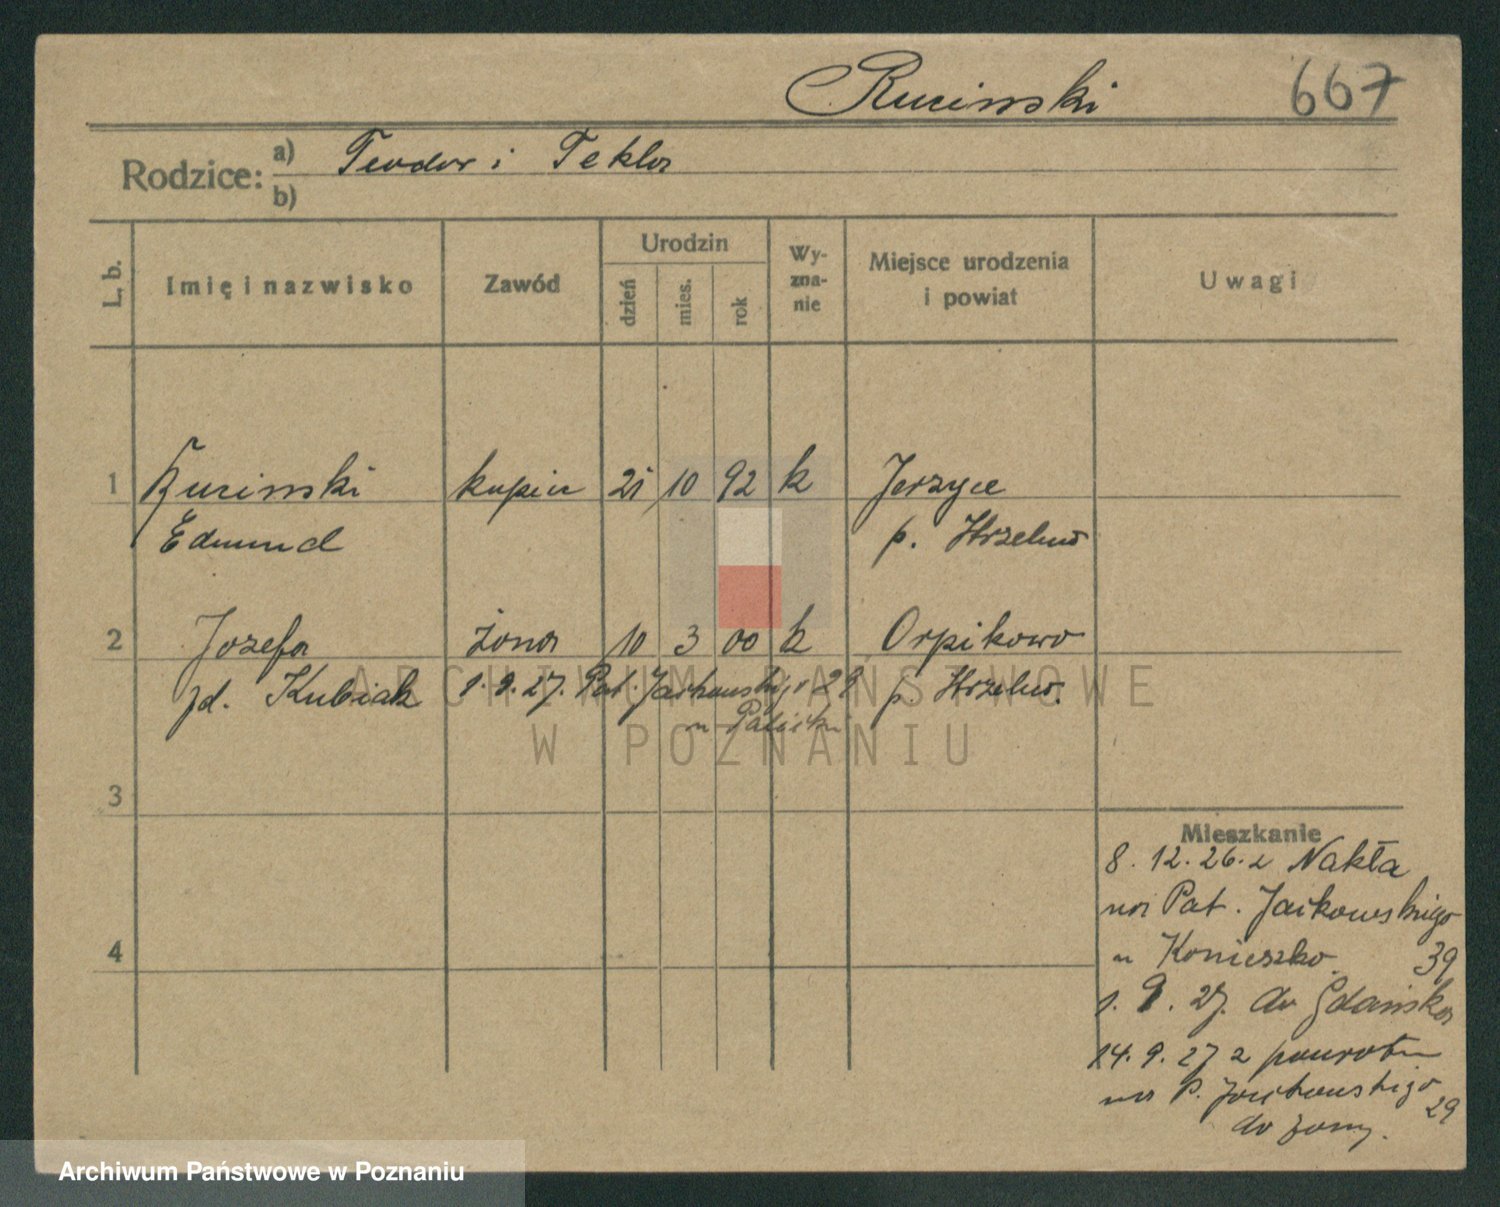 Rucinski 667
Rodzice: a) Teodor i Tekla
b)
L. b. Imię i nazwisko Zawód Urodzin dzień mies. rok Wyznanie Miejsce urodzenia i powiat Uwagi
1 Rucinski kupiec 21 10 92 k Jerzyce
Edmund p. Strzelno
2 Józefa żona 10 3 00 k Orpikowo
zd. Kubiak 1.9.27. Pat. Jackowskiego 29 p. Strzelno.
u
3
4
Mieszkanie
8.12.26. z Nakła
na Pat. Jackowskiego
u Konieszko 39
1.9.27. do Gdańska
14.9.27 z powrotem
na P. Jackowskiego 29
do żony.
ARCHIWUM PAŃSTWOWE
W POZNANIU
Archiwum Państwowe w Poznaniu